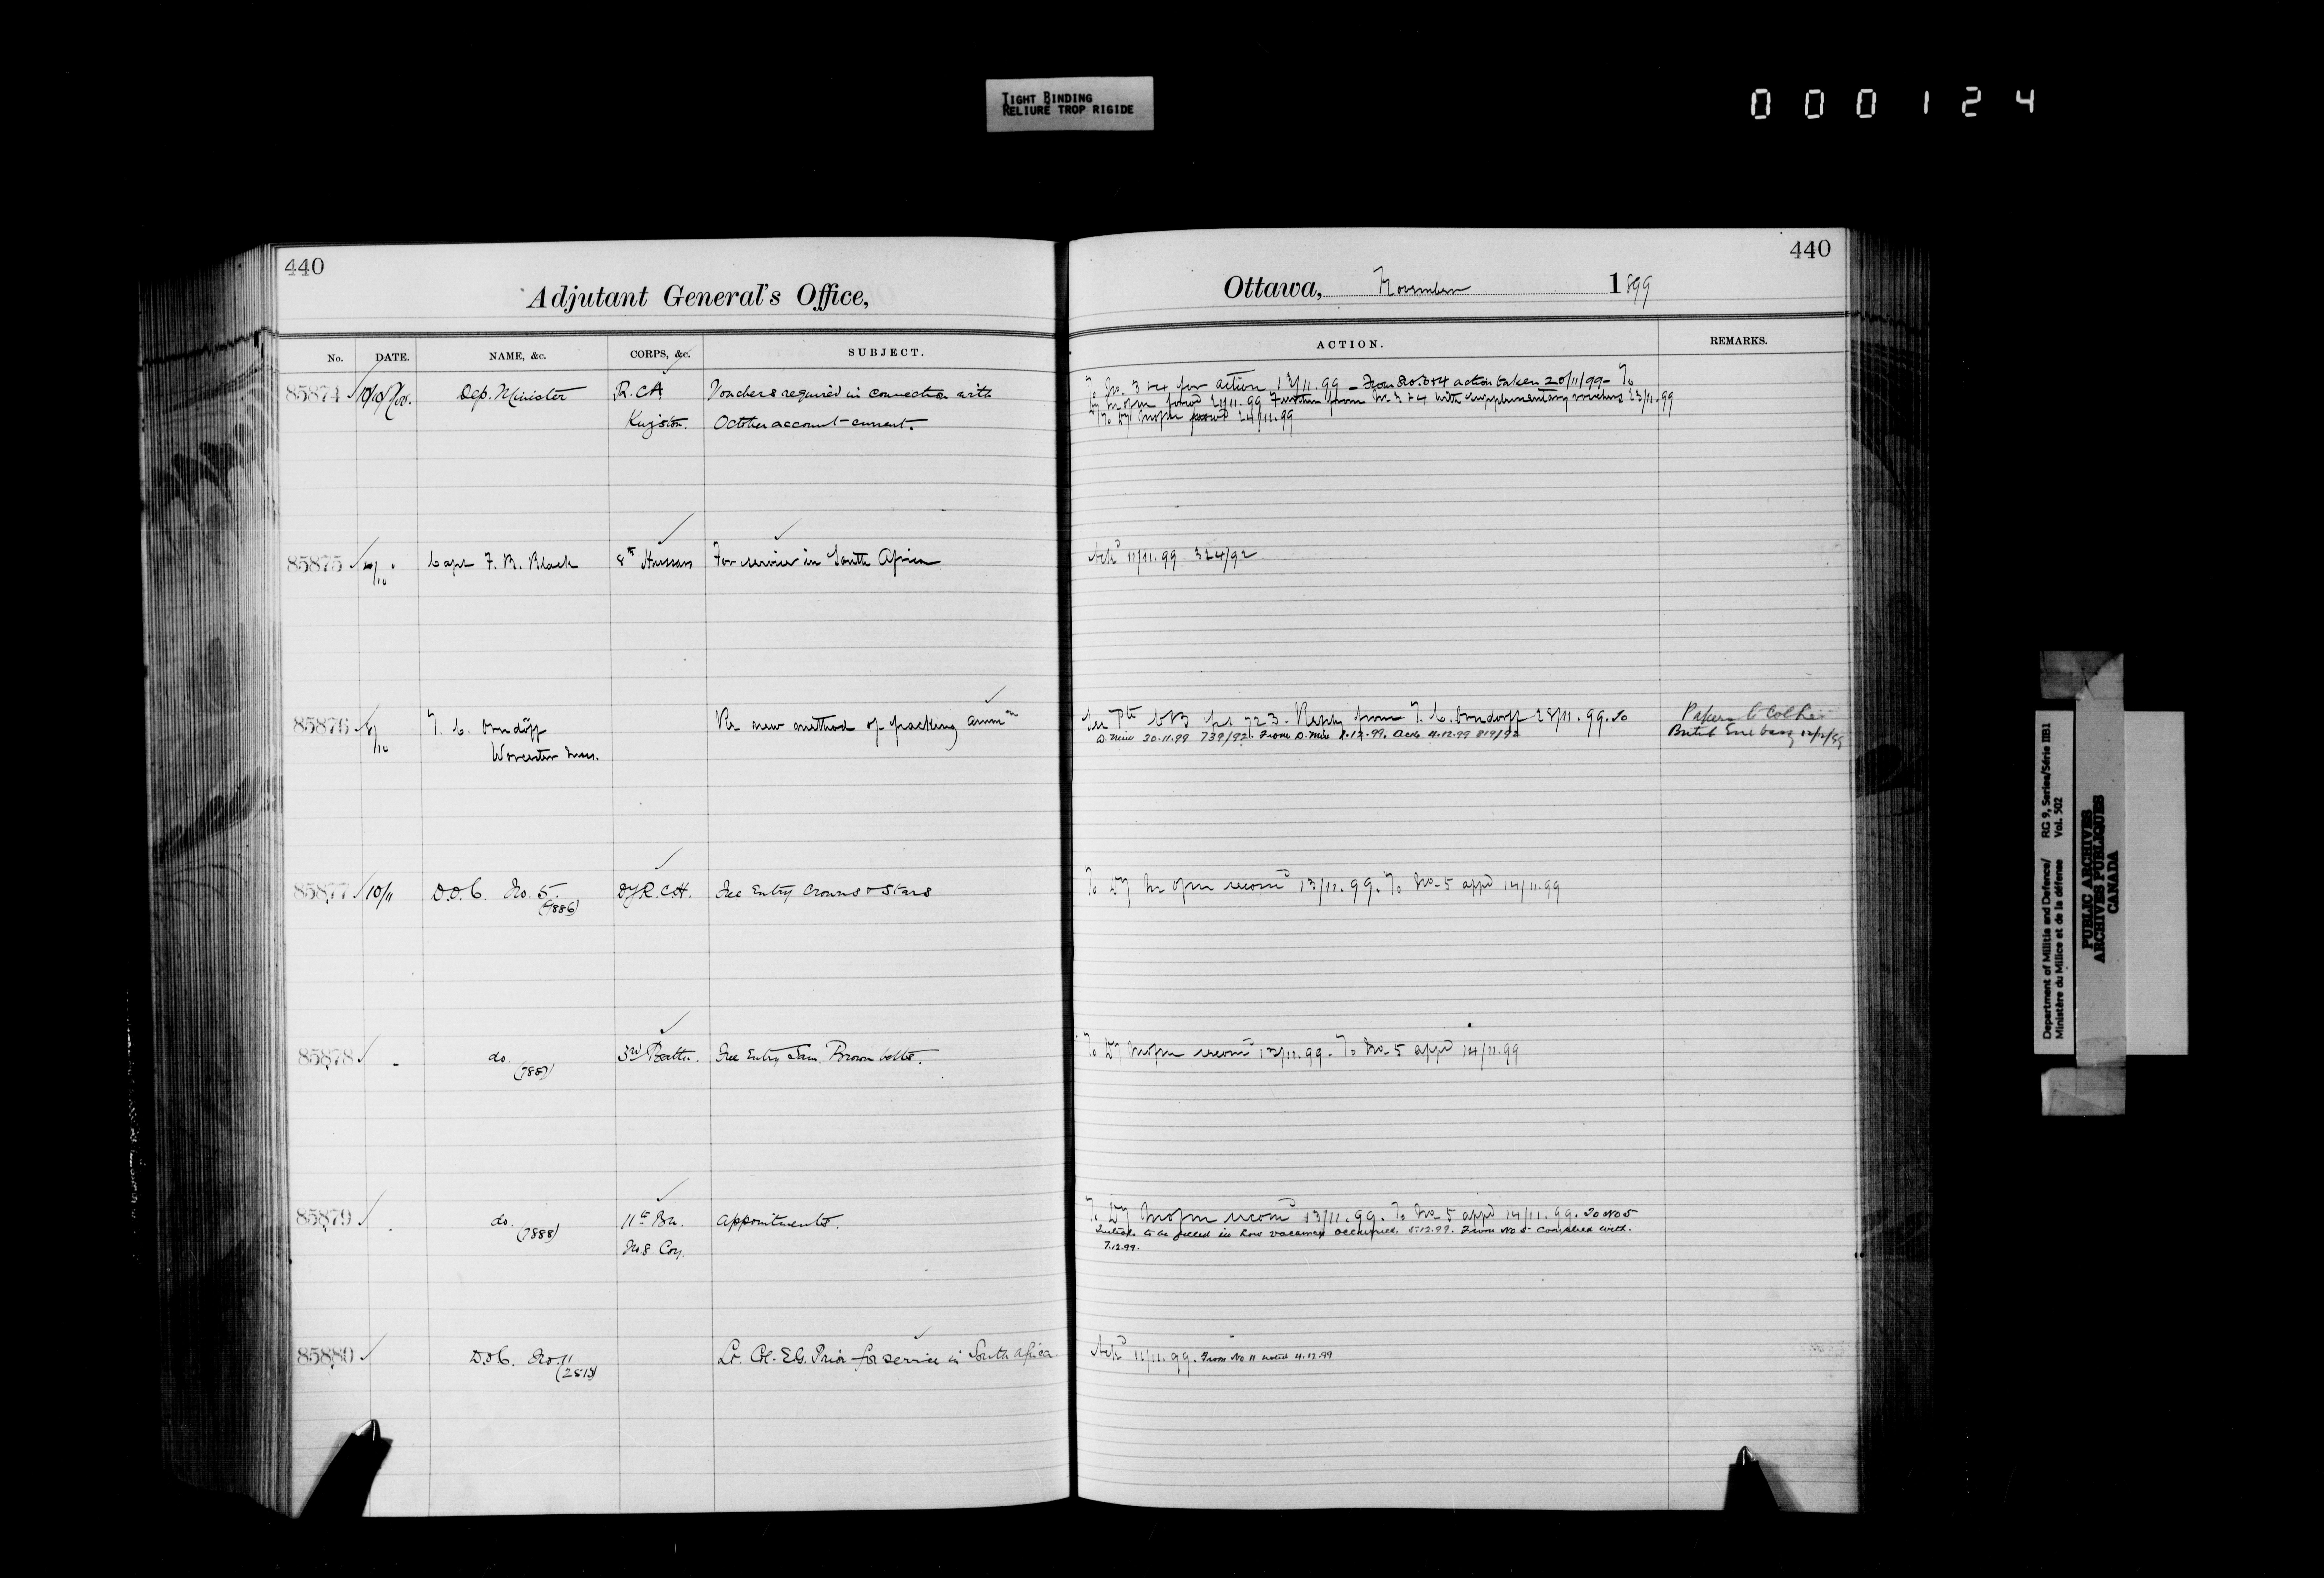 TIGHT BINDING
RELIURE TROP RIGIDE
000124
440
Adjutant General's Office,
No. DATE. NAME, &c. CORPS, &c. SUBJECT.
85874 Dep. Minister R.C.A Vouchers required in connection with
Kingston. October account-current.
85875 Capt F. B. Black 8th Hussars For service in South Africa
85876 T. C. Orndoff Re new method of packing ammn
Worcester Mass.
85877 10/11 D.O.C. No. 5. R.C.H. Free Entry Crowns & Stars
(7886)
85878 do. 3rd Batt. Free Entry Sam Brown belts.
(7887)
85879 do. 11th Bn. appointments.
(7888)
No 8 Coy.
85880 D.O.C. No. 11 Lt. Col. E.G. Prior for service in South Africa
440
Ottawa, November 1899
ACTION. REMARKS.
To No. 3 & 4 for action 13/11.99 - From No. 3 & 4 action taken 20/11/99 - To
21/11.99 Further from No 3 & 4 with supplementary vouchers 23/11.99
24/11.99
Ackd 11/11.99 324/92
723. Reply from T. C. Orndoff 28/11.99. To
D. Min 30.11.99 739/92. From D. Min 1.12.99. Ack 4.12.99 819/92
Papers to Col
British Embassy
recomd 13/11.99. To No. 5 appd 14/11.99
recomd 13/11.99. To No. 5 appd 14/11.99
recomd 13/11.99. To No. 5 appd 14/11.99. To No 5
to be filled in how vacancy occurred. 5.12.99. From No 5 complied with.
7.12.99.
Ackd 11/11.99. From No 11 noted 4.12.99
Department of Militia and Defence/ RG 9, Series/Série IIB1
Ministère du Milice et de la défense Vol. 502
PUBLIC ARCHIVES
ARCHIVES PUBLIQUES
CANADA